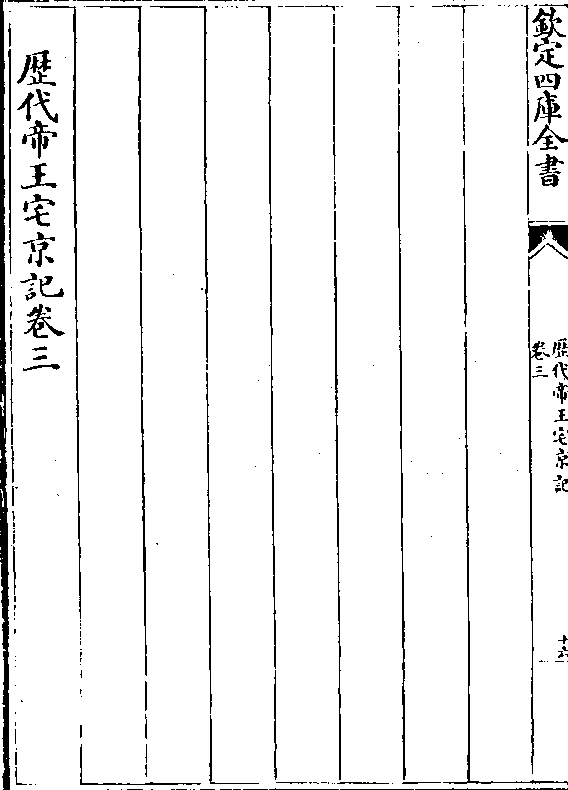 欽定四庫全書
歷代帝王宅京記
卷三
十六
歷代帝王宅京記卷三